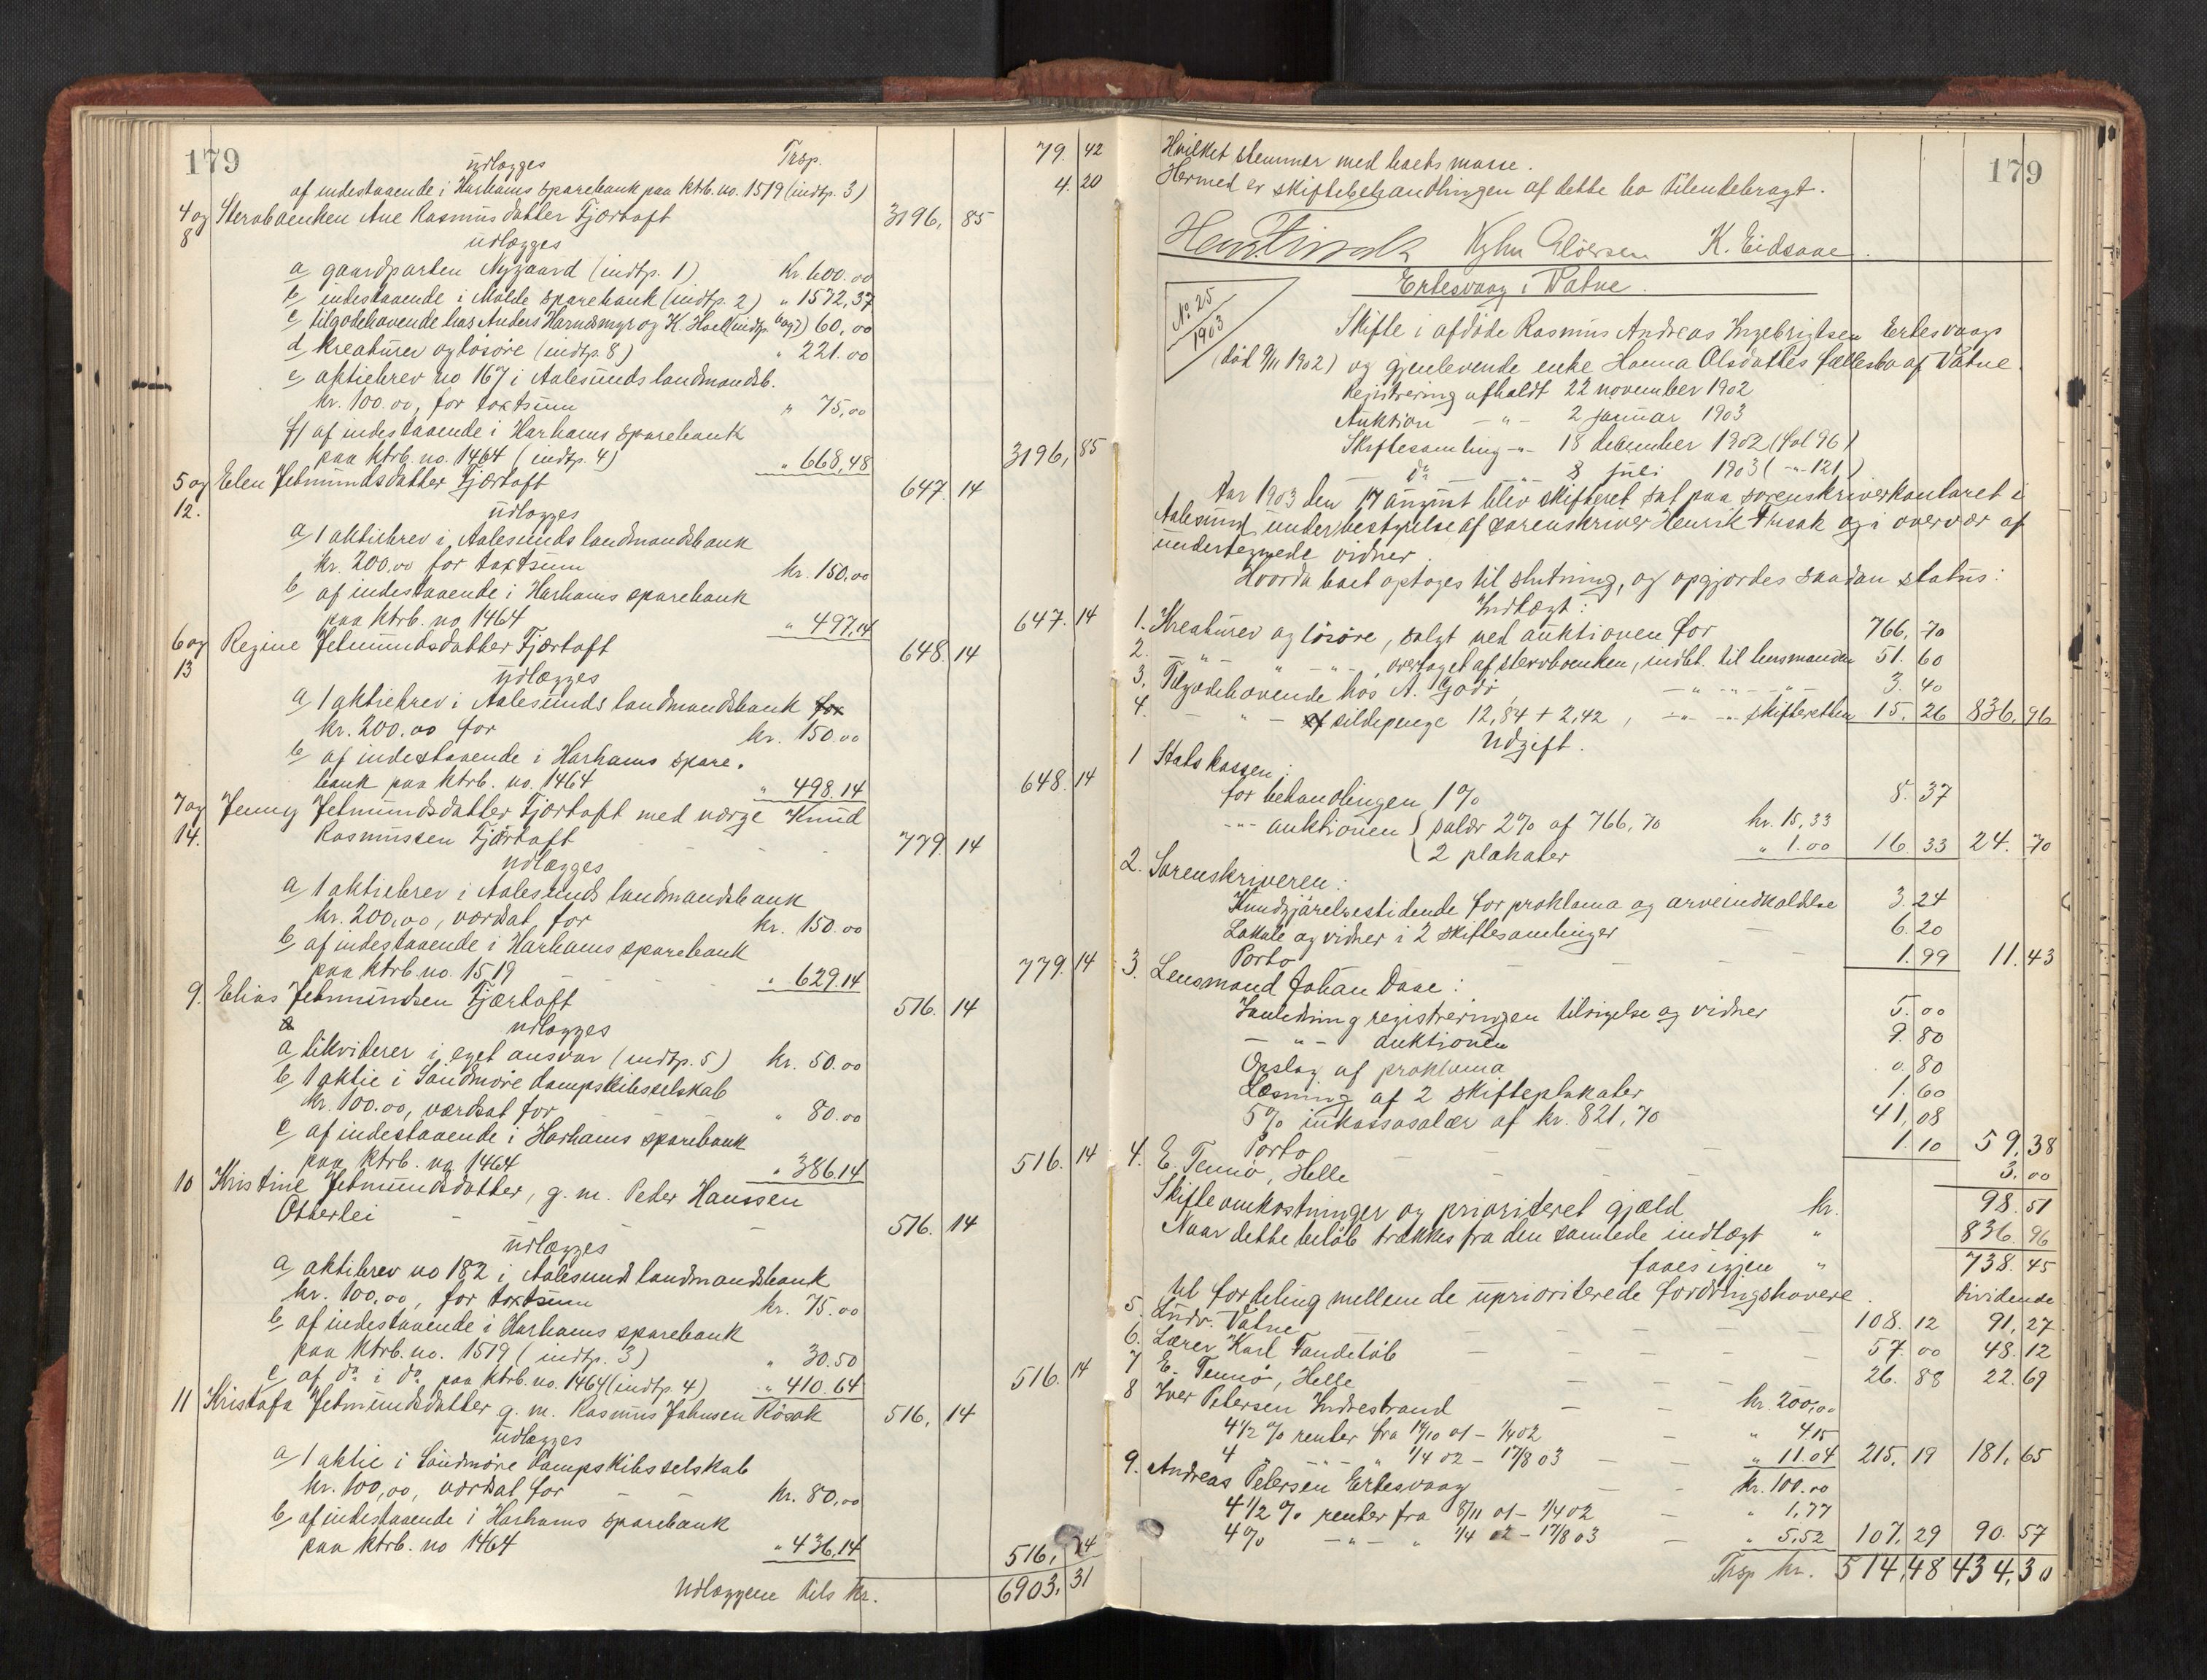 179
Trsp. 79. 42
udlægges
af indestaaende i Harhams sparebank paa ktrb. no. 1519 (indtp. 3) 4. 20
4 og 8 Stervboenken Ane Rasmusdatter Fjærtoft 3196, 85
udlægges
a gaardparten Nygaard (indtp. 1) Kr. 600.00
b indestaaende i Molde sparebank (indtp. 2) " 1572,37
c tilgodehavende hos Anders Harnesmyr og K. Hoel (indtp. 6 og 7) 60,00
d kreaturer og løsøre (indtp. 8) " 221.00
e aktiebrev no 167 i Aalesunds landmandsb.
kr. 100.00, for taxtsum " 75,00
f) af indestaaende i Harhams sparebank
paa ktrb. no. 1464 (indtp. 4) " 668,48 3196, 85
5 og 12. Elen Jetmundsdatter Fjærtoft 647. 14
udlægges
a 1 aktiebrev i Aalesunds landmandsbank
kr. 200.00 for taxtsum kr. 150,00
b af indestaaende i Harhams sparebank
paa ktrb. no 1464 " 497,14 647. 14
6 og 13 Regine Jetmundsdatter Fjærtoft 648. 14
udlægges
a 1 aktiebrev i Aalesunds landmandsbank for
kr. 200.00 for kr. 150.00
b af indestaaende i Harhams spare-
bank paa ktrb. no. 1464 " 498.14 648. 14
7 og 14. Jenny Jetmundsdatter Fjærtoft med værge Knud
Rasmussen Fjørtoft 779. 14
udlægges
a 1 aktiebrev i Aalesunds landmandsbank
kr. 200,00, værdsat for kr. 150.00
b af indestaaende i Harhams sparebank
paa ktrb. no. 1519 " 629.14 779. 14
9. Elias Jetmundsen Fjærtoft 516. 14
udlægges
a likviderer i eget ansvar (indtp. 5) kr. 50.00
b 1 aktie i Søndmøre dampskibsselskab
kr. 100.00, værdsat for " 80.00
c af indestaaende i Harhams sparebank
paa ktrb. no 1464 " 386.14 516. 14
10 Kristine Jetmundsdatter, g. m. Peder Hanssen
Otterlei 516. 14
udlægges
a aktibrev no 182 i Aalesund landmandsbank
kr. 100,00, for taxtsum kr. 75.00
b af indestaaende i Harhams sparebank
paa ktrb. no. 1519 (indtp. 3) " 30.50
c af do i do paa ktrb. no. 1464 (indtp. 4) " 410.64 516. 14
11 Kristofa Jetmundsdatter g. m. Rasmus Johnsen Røsok 516, 14
udlægges
a 1 aktie i Søndmøre dampskibsselskab
kr. 100,00, værdsat for kr. 80,00
b af indestaaende i Harhams sparebank
paa ktrb. no 1464 " 436,14 516, 14
Udlæggene tils kr. 6903, 31
179
Hvilket stemmer med boets masse.
Hermed er skiftebehandlingen af dette bo tilendebragt.
K. Eidsaae
Ertesvaag i Vatne.
No. 25
1903
Skifte i afdøde Rasmus Andreas Ingebrigtsen Ertesvaags
(død 9/11 1902) og gjenlevende enke Hanna Olsdatters fællesbo af Vatne.
Registrering afholdt 22 november 1902
Auktion - " - 2 januar 1903
Skiftesamling - " - 18 december 1902 (fol 96)
do - " - 8 juli 1903 ( - " - 121)
Aar 1903 den 17 august blev skifteret sat paa sorenskriverkontoret i
Aalesund under bestyrelse af sorenskriver Henrik Finsak og i overvær af
undertegnede vidner.
Hvorda boet optoges til slutning, og opgjordes saadan status:
Indtægt:
1. Kreaturer og løsøre, solgt ved auktionen for 766, 70
2. - " - " - " -, overtaget af stervboenken, indbt. til lensmanden 51. 60
3. Tilgodehavende hos A. Godø - " - " - " - 3. 40
4. - " - af sildepenge 12,84 + 2,42, - " - " - skifteretten 15. 26 836. 96
Udgift.
1 Statskassen:
for behandlingen 1% 8. 37
- " - auktionen { salær 2% af 766,70 kr. 15,33
{ 2 plakater " 1.00 16. 33 24. 70
2. Sorenskriveren:
Kundgjørelsestidende for proklama og arveindkaldelse 3. 24
Lokale og vidner i 2 skiftesamlinger 6. 20
Porto 1. 99 11. 43
3. Lensmand Johan Daae:
I anledning registreringen tilsigelse og vidner 5. 00
- " - auktionen 9. 80
Opslag af proklama 0. 80
Læsning af 2 skifteplakater 1. 60
5% inkassosalær af kr. 821,70 41, 08
Porto 1. 10 59, 38
4. E. Tennø, Helle 3. 00
Skifteomkostninger og prioriteret gjæld kr. 98. 51
Naar dette beløb trækkes fra den samlede indtægt " 836. 96
faaes igjen " 738. 45
til fordeling mellem de uprioriterede fordringshavere. Dividende
5. Ludv. Vatne 108. 12 91, 27
6. Lærer Karl Tandeløb 57. 00 48. 12
7 E. Tennø, Helle 26. 88 22. 69
8 Iver Petersen Indrestrand kr. 200,00
4 1/2 % renter fra 14/10 01 - 1/4 02 " 4 15
4 - " - " 1/4 02 - 17/8 03 " 11.04 215. 19 181. 65
9. Andreas Petersen Ertesvaag kr. 100.00
4 1/2 % renter fra 8/11 01 - 1/4 02 " 1,77
4% - " - " 1/4 02 - 17/8 03 " 5.52 107. 29 90. 57
Trsp kr. 514, 48 434, 30